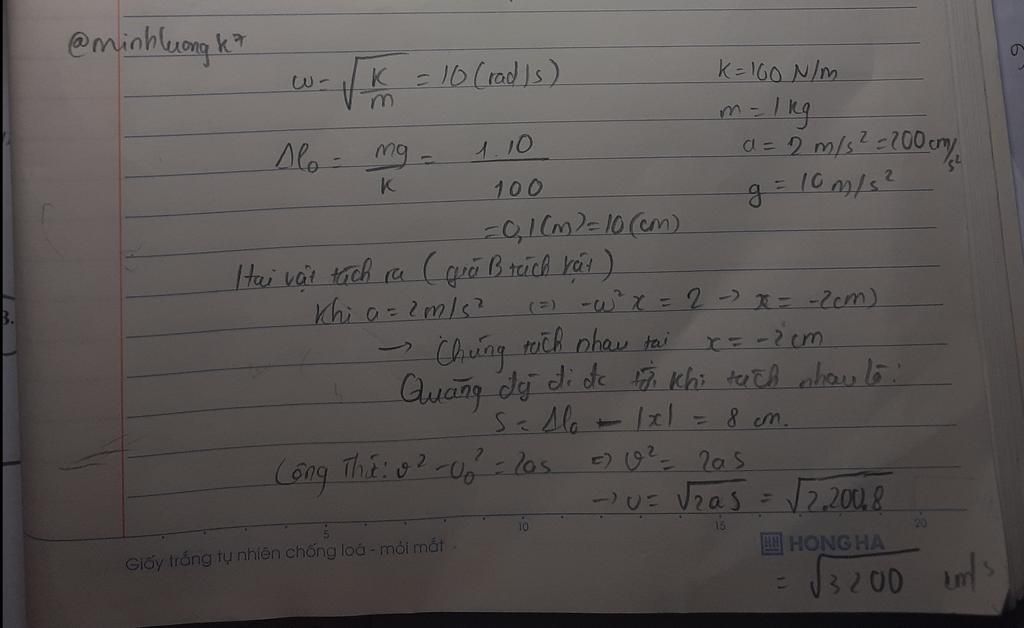 @minhluongk7
ω = √(K/m) = 10 (rad/s)
K = 100 N/m
m = 1 kg
Δl₀ = mg/K = 1.10/100
a = 2 m/s² = 200 cm/s²
g = 10 m/s²
= 0,1 (m) = 10 (cm)
Hai vật tách ra (giá B tách vật)
Khi a = 2 m/s² (=) -ω²x = 2 → x = -2cm)
→ Chúng tách nhau tại x = -2 cm
Quãng đg đi đc tới khi tách nhau là:
S = Δl₀ - |x| = 8 cm.
Công Thức: v² - v₀² = 2as => v² = 2as
→ v = √2aS = √2.200.8
5 10 15 20
Giấy trắng tự nhiên chống loá - mỏi mắt
HONG HA
= √3200 cm/s